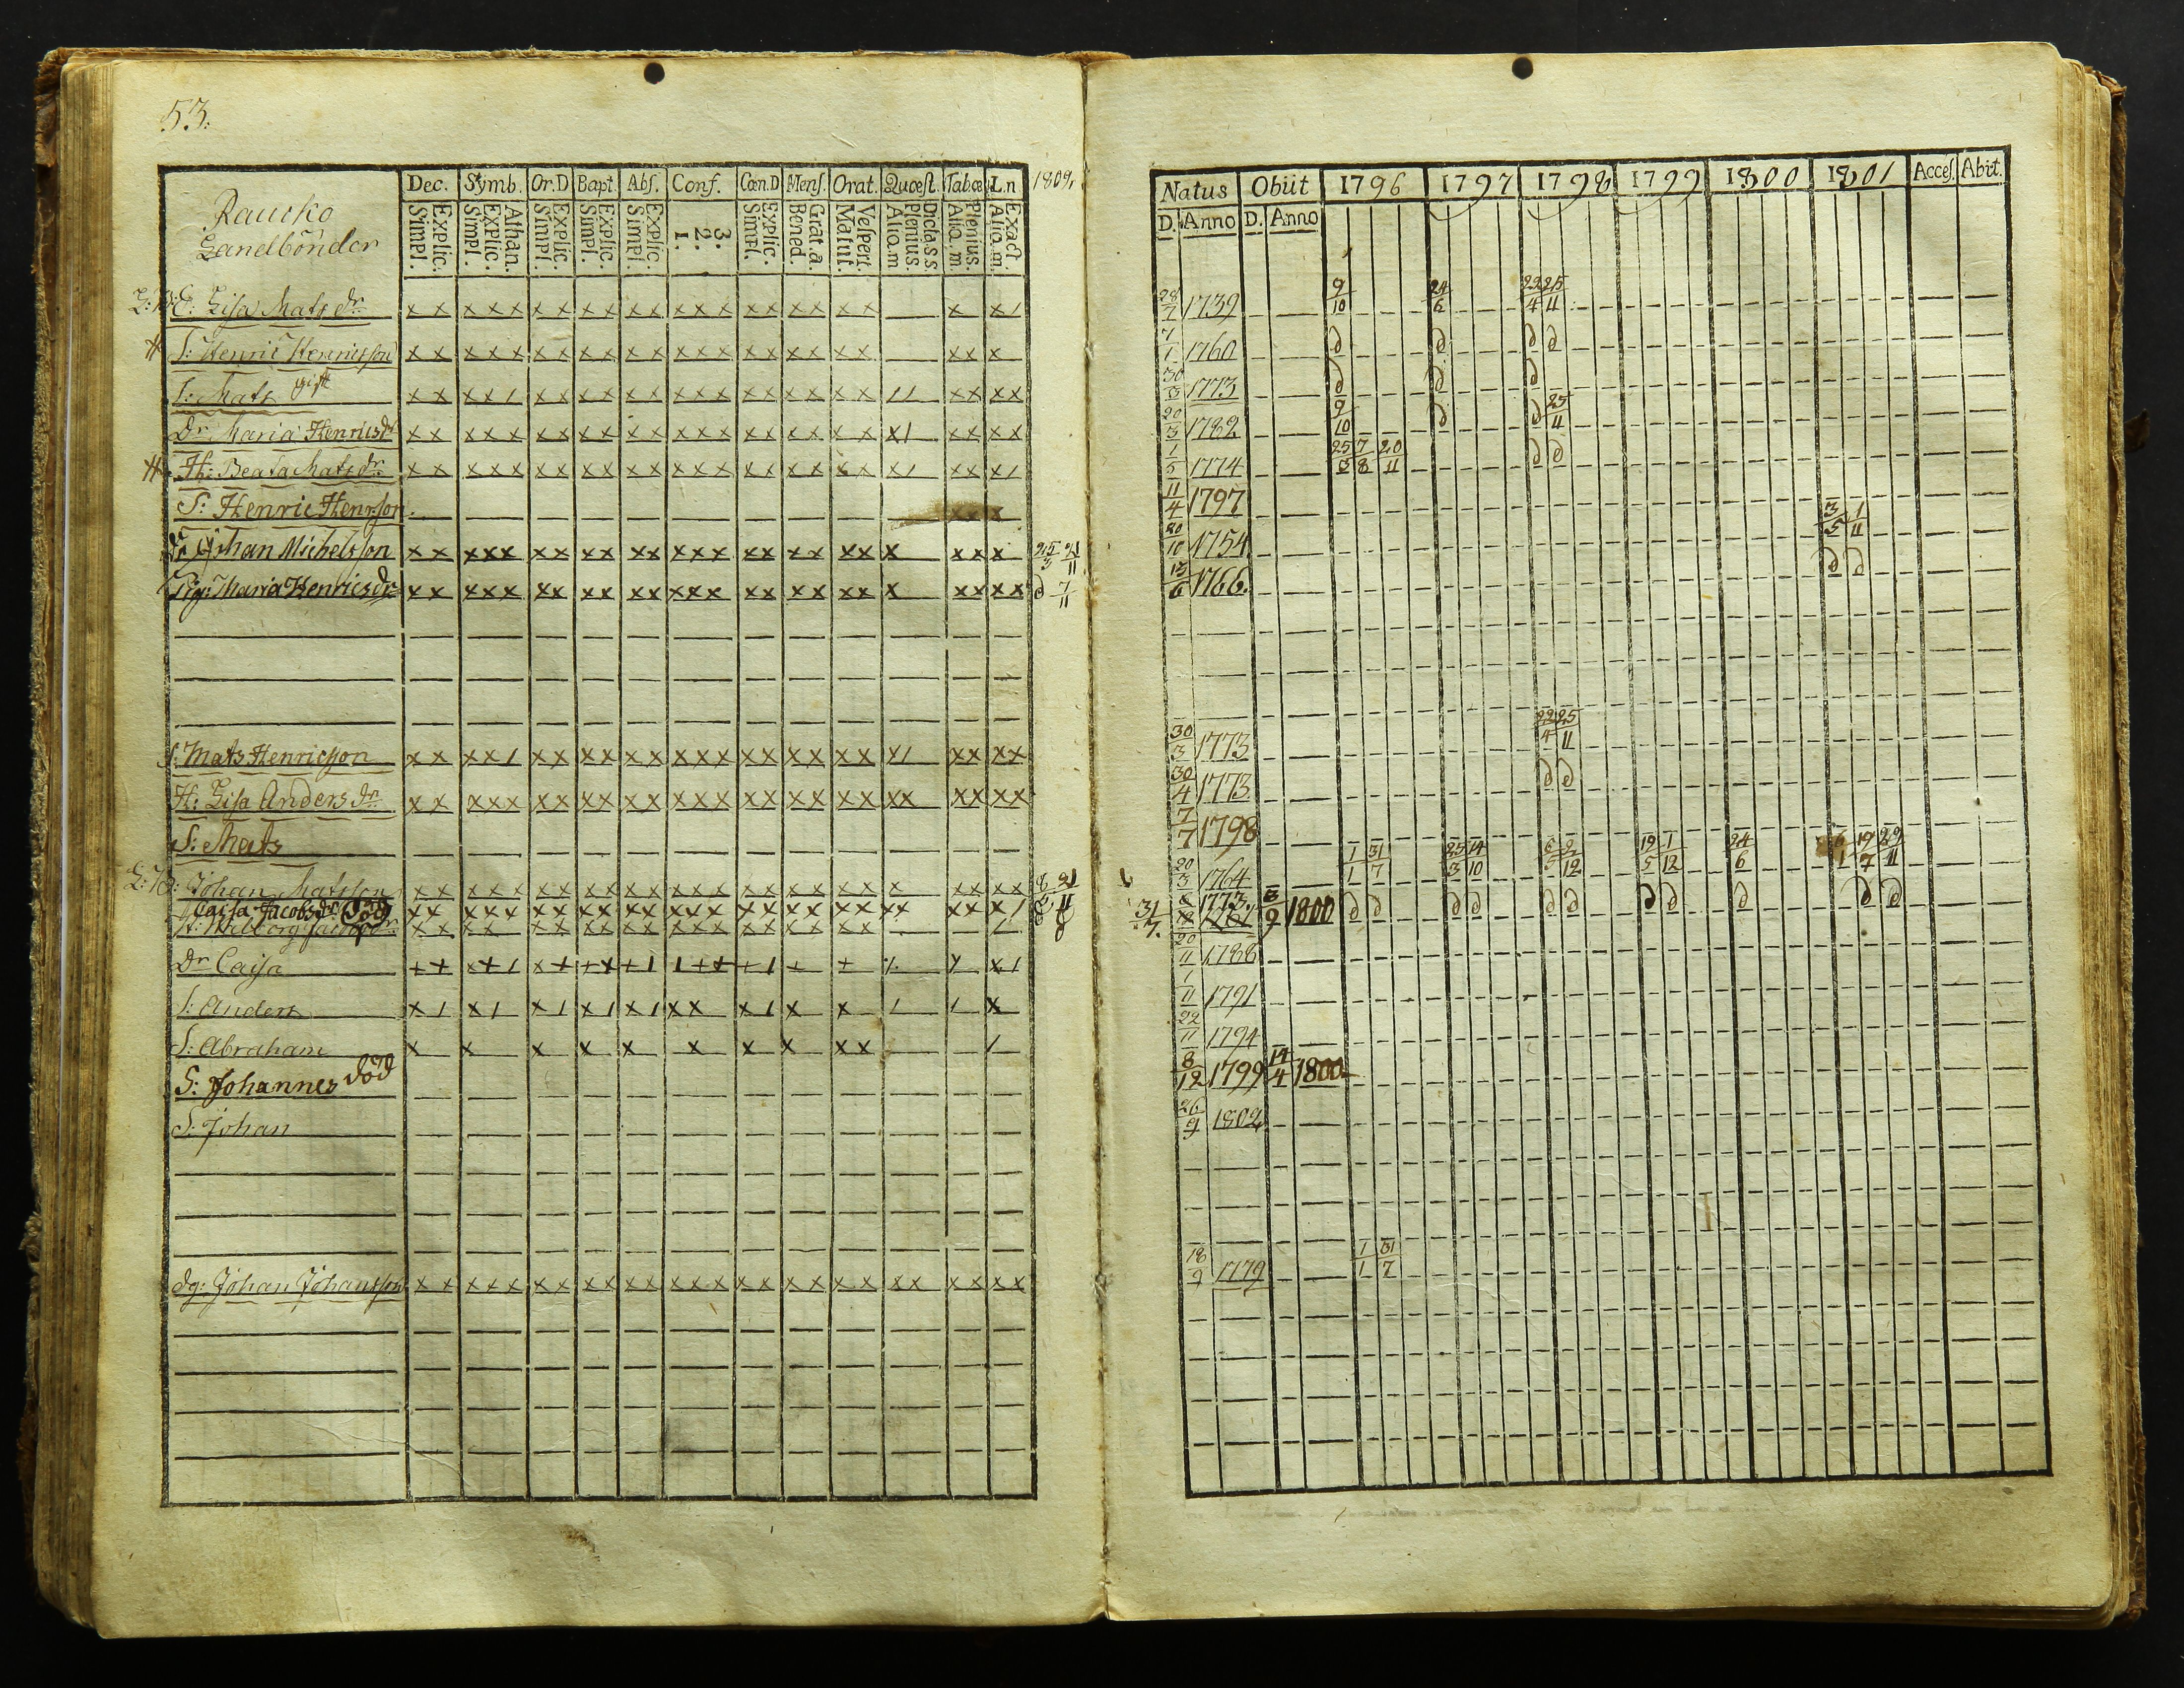 53.
Dec. Symb. Or.D Bapt. Abſ. Conf. Cœn.D Menſ. Orat. Quœſt. Tab.œ L.n 1802,
Landbönder
Explic. Simpl. Athan. Explic. Simpl. Explic. Simpl. Explic. Simpl. Explic. Simpl. 3. 2. 1. Explic. Simpl. Grat. a. Bened. Veſpert. Matut. Dicta.s.s. Plenius. Aliq.m Plenius. Aliq.m. Exact. Aliq.m.
E: Liſa Mats dr
S: Henric Henricsſon
S: Mats gift
Dr Maria Henricsdr
H: Beata Mats dr
S: Henric Henrſon
Johan Michelsſon
Pig: Maria Henricsdr
S: Mats Henricſſon
H: Liſa Anders dr
S: Mats
L:B: Johan Matsſon
Caiſa Jacobsdr död
H: Walborg Jacobsdr
Dr Caiſa
S: Anders
S: Abraham
S: Johannes död
S: Johan
dg: Johan Johansſon
Natus Obiit 1796 1797 1798 1799 1800 1801 Acceſ. Abiit.
D. Anno D. Anno
28/7 1739 9/10 24/6 22/4 25/11
7/1 1760 d d d d
1773 d d d
1782 9/10 d d 25/11
1/5 1774 25/3 7/8 20/11 d d
11/4 1797
20/10 1754 3/5 1/11
13/6 1766. d d
30/3 1773 22/4 25/11
30/4 1773 d d
7/7 1798
20/3 1764 1/1 31/7 25/3 14/10 6/5 2/12 19/5 1/12 24/6 19/7 29/11
1773. 1800 d d d d d d d d d d d
20/11 1788
1/11 1791
22/11 1794
8/12 1799 14/4 1800
26/9 1802
18/9 1779 1/1 31/7